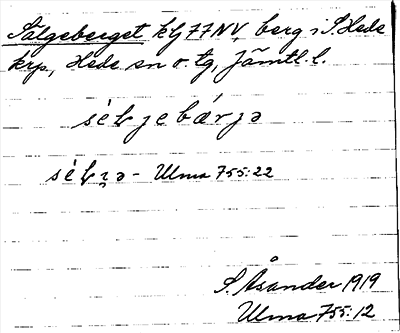 Sälgeberget kG 77 NV, berg i S. Hede
krp, Hede sn o. tg, Jämtl. l.
sélzə- Ulma 755:22
S. Åsander 1919
Ulma 755:12